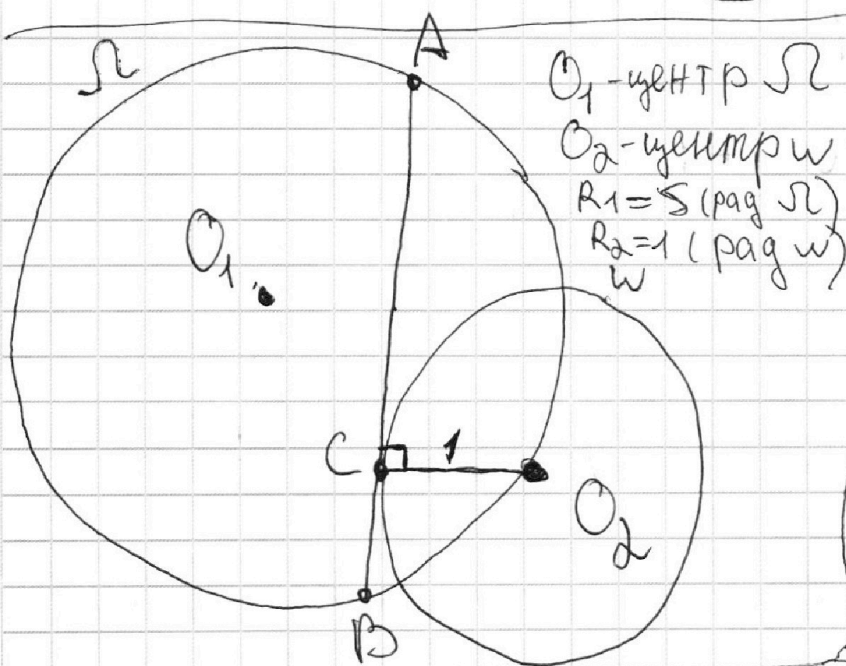 Ω
A
O₁ - центр Ω
O₂ - центр w
R1 = 5 (рад Ω)
R₂ = 1 (рад w)
w
O₁
C
1
O₂
B